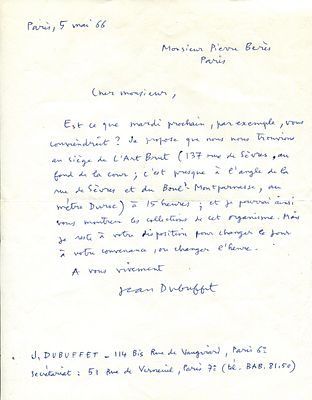 Paris, 5 mai 66
Monsieur Pierre Berès
Paris
Cher monsieur,
Est ce que mardi prochain, par exemple, vous
conviendrait ? Je propose que nous nous trouvions
au siège de L'Art Brut (137 rue de Sèvres, au
fond de la cour ; c'est presque à l'angle de la
rue de Sèvres et du Boul.d Montparnasse, au
métro Duroc) à 15 heures ; et je pourrai ainsi
vous montrer les collections de cet organisme. Mais
je reste à votre disposition pour changer le jour
à votre convenance, ou changer l'heure.
A vous vivement
Jean Dubuffet
J. DUBUFFET - 114 Bis Rue de Vaugirard, Paris 6e
Secrétariat : 51 Rue de Verneuil, Paris 7e (tél. BAB. 81.50)